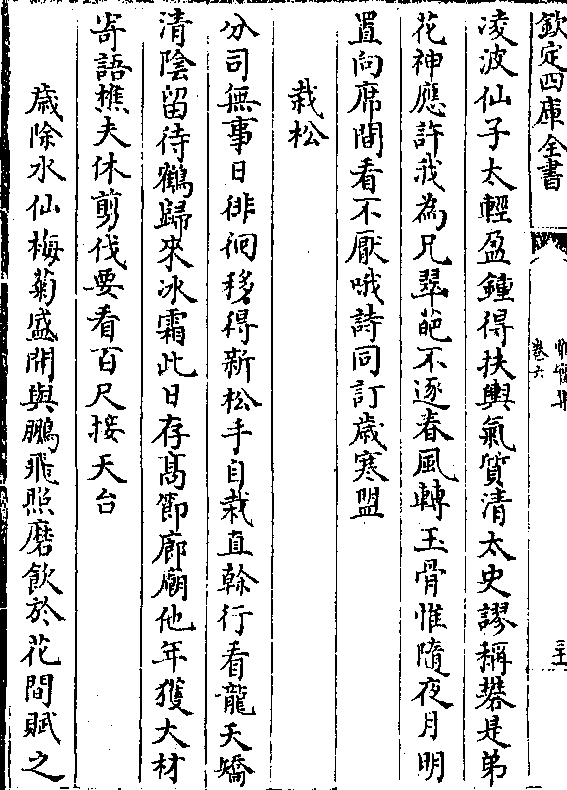 欽定四庫全書
卷六
凌波仙子太輕盈鍾得扶輿氣質清太史謬稱礬是弟
花神應許我為兄翠葩不逐春風轉玉骨惟隨夜月明
置向席間看不厭哦詩同訂歳寒盟
栽松
分司無事日徘徊移得新松手自栽直榦行看龍夭矯
清陰留待鶴歸來冰霜此日存髙節廊廟他年獲大材
寄語樵夫休剪伐要看百尺接天台
歳除水仙梅菊盛開與鵬飛照磨飲於花間賦之